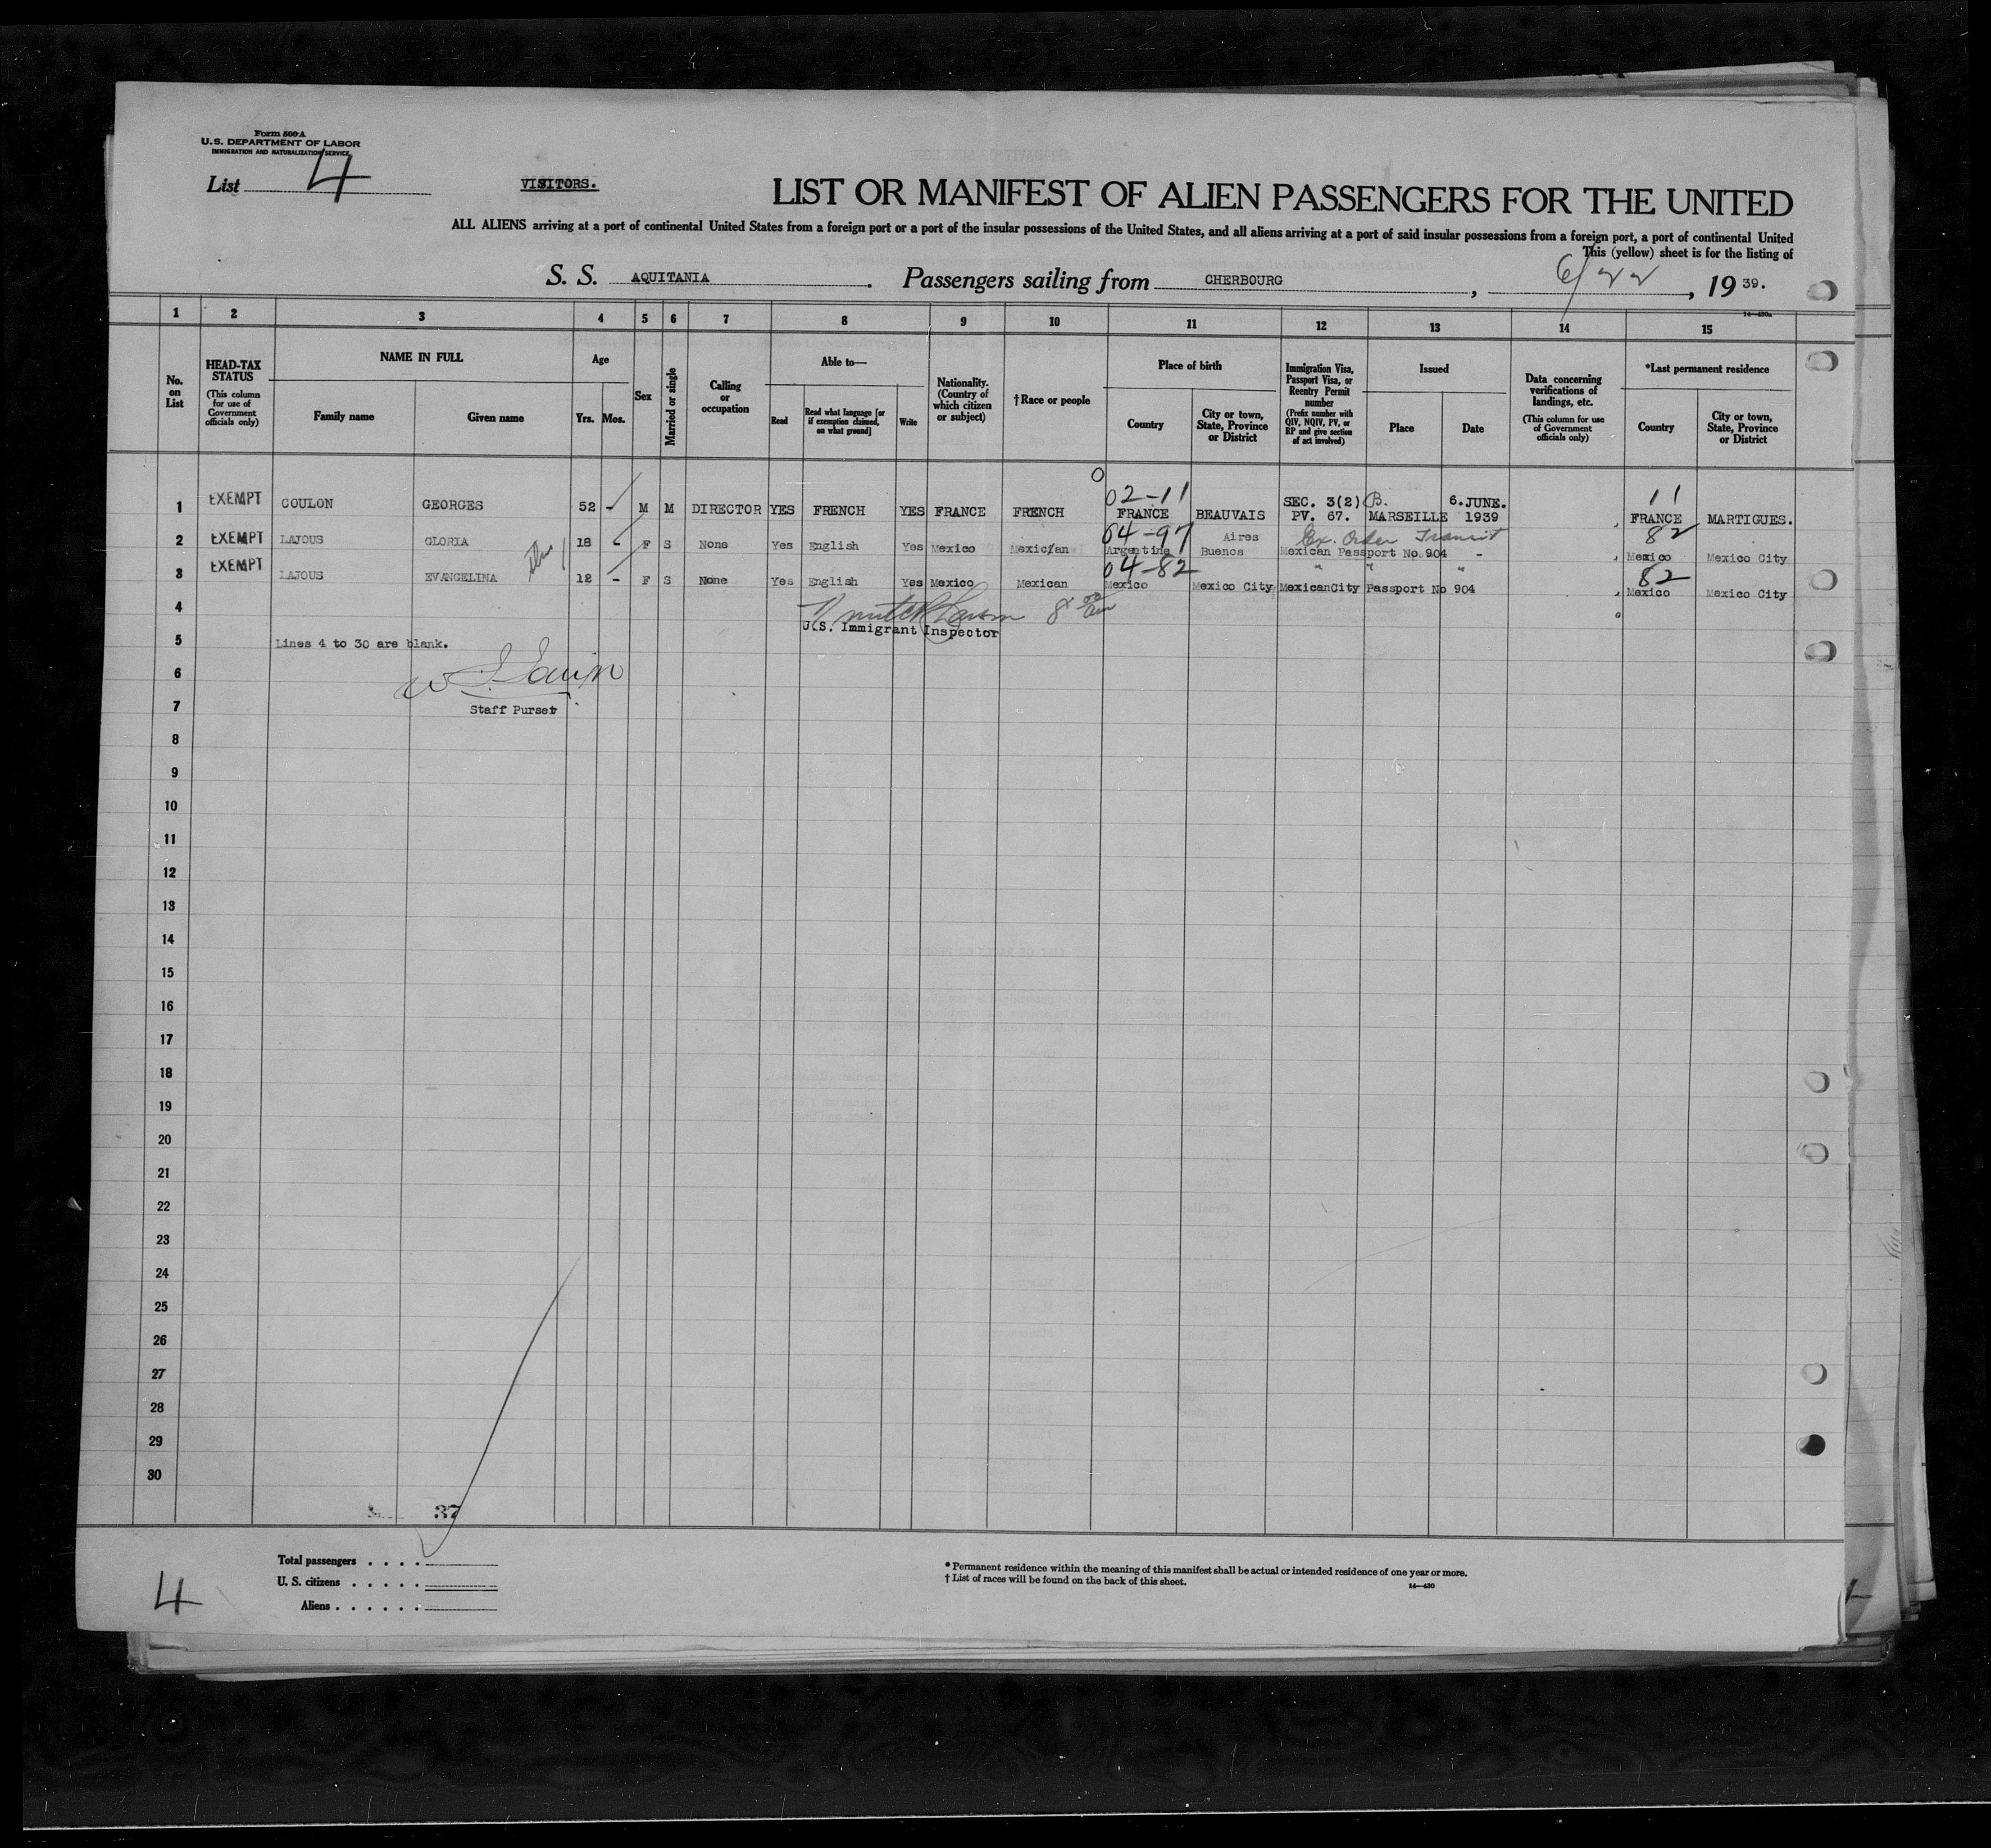 Form 500-A
U.S. DEPARTMENT OF LABOR
IMMIGRATION AND NATURALIZATION SERVICE
List 4
VISITORS.
LIST OR MANIFEST OF ALIEN PASSENGERS FOR THE UNITED
ALL ALIENS arriving at a port of continental United States from a foreign port or a port of the insular possessions of the United States, and all aliens arriving at a port of said insular possessions from a foreign port, a port of continental United
This (yellow) sheet is for the listing of
S. S. AQUITANIA. Passengers sailing from CHERBOURG, 6/22, 1939.
14—430a
1 2 3 4 5 6 7 8 9 10 11 12 13 14 15
No. on List
HEAD-TAX STATUS (This column for use of Government officials only)
NAME IN FULL
Family name Given name
Age
Yrs. Mos.
Sex
Married or single
Calling or occupation
Able to—
Read
Read what language [or if exemption claimed, on what ground]
Write
Nationality. (Country of which citizen or subject)
†Race or people
Place of birth
Country
City or town, State, Province or District
Immigration Visa, Passport Visa, or Reentry Permit number (Prefix number with QIV, NQIV, PV, or RP and give section of act involved)
Issued
Place Date
Data concerning verifications of landings, etc. (This column for use of Government officials only)
*Last permanent residence
Country
City or town, State, Province or District
O
02-11 SEC. 3(2) B. 6.JUNE. 11
1 EXEMPT COULON GEORGES 52 - M M DIRECTOR YES FRENCH YES FRANCE FRENCH FRANCE BEAUVAIS PV. 67. MARSEILLE 1939 FRANCE MARTIGUES.
04-97 Aires Ex. Order Transit 82
2 EXEMPT LAJOUS GLORIA 18 - F S None Yes English Yes Mexico Mexician Argentina Buenos Mexican Passport No 904 - Mexico Mexico City
04-82 " " " 82
3 EXEMPT LAJOUS EVANGELINA 12 - F S None Yes English Yes Mexico Mexican Mexico Mexico City MexicanCity Passport No 904 Mexico Mexico City
4
U.S. Immigrant Inspector
5 Lines 4 to 30 are blank.
6
7 Staff Purser
8
9
10
11
12
13
14
15
16
17
18
19
20
21
22
23
24
25
26
27
28
29
30
37
Total passengers . . . .
U. S. citizens . . . . .
Aliens . . . . . .
4
* Permanent residence within the meaning of this manifest shall be actual or intended residence of one year or more.
† List of races will be found on the back of this sheet.
14—430